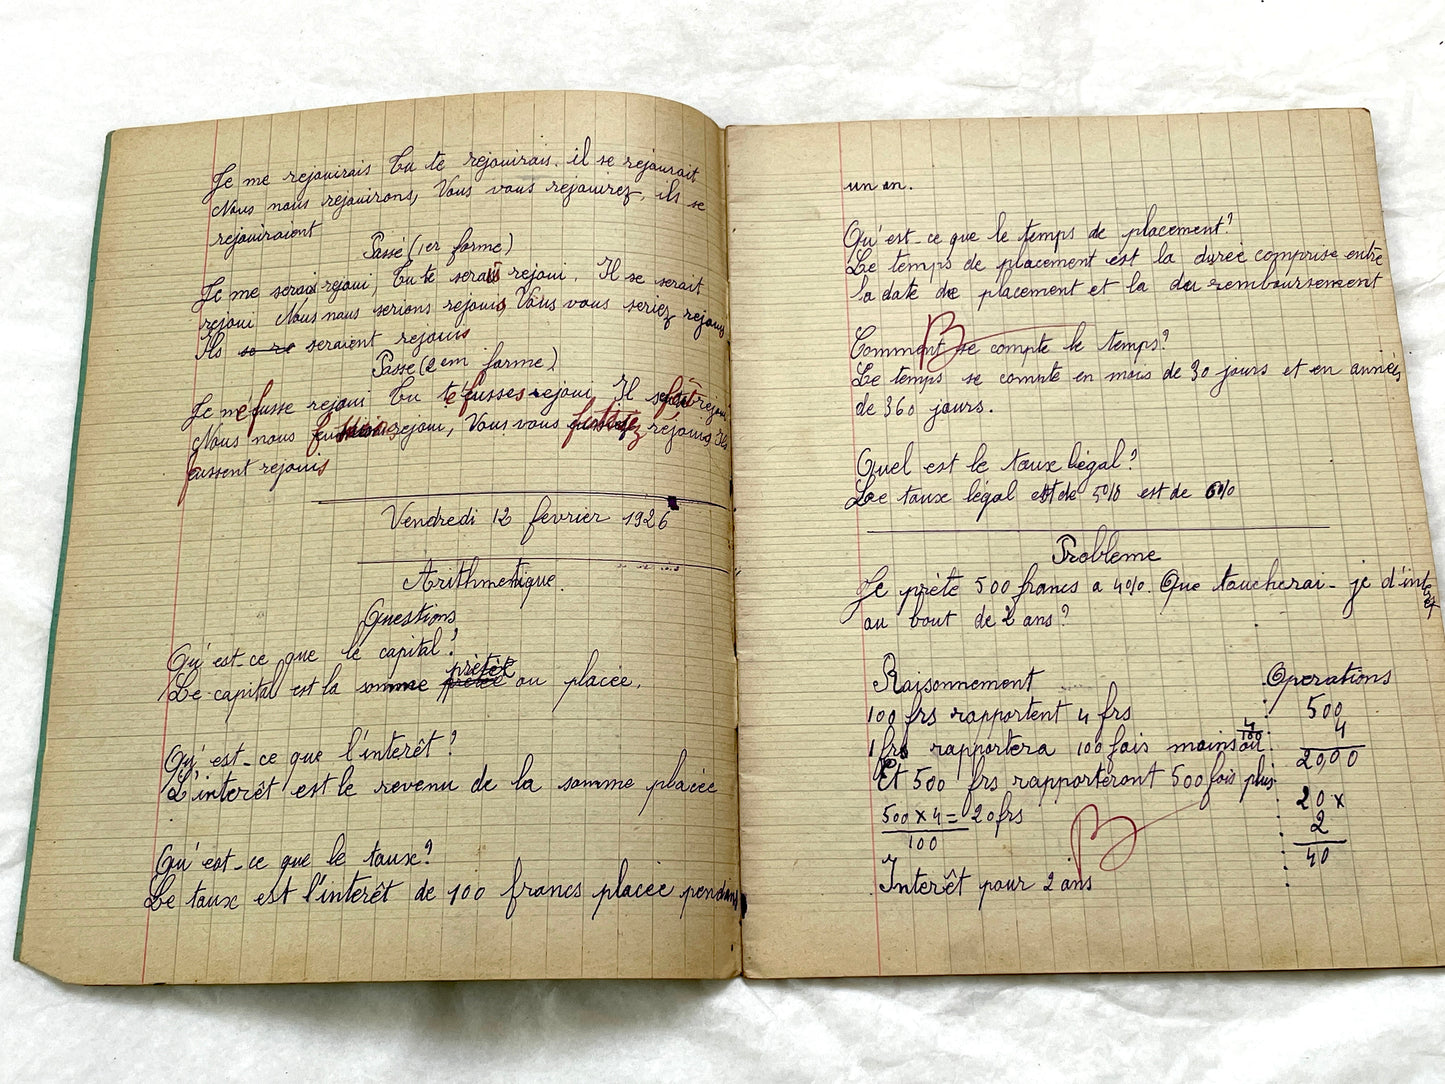 Je me rejouirais Tu te rejouirais. il se rejouirait
Nous nous rejouirons, Vous vous rejouirez, ils se
rejouiraient
Passé (1er forme)
Je me serais rejoui, Tu te serais rejoui. Il se serait
rejoui Nous nous serions rejouis Vous vous seriez rejouis
Ils se re seraient rejouis
Passé (2em forme)
Je me fusse rejoui Tu te fusses rejoui Il se fût rejoui
Nous nous rejoui, Vous vous rejouis Ils
fussent rejouis
Vendredi 12 fevrier 1926
Arithmetique.
Questions
Qu'est-ce que le capital?
Le capital est la somme prêtée ou placée.
Qu'est-ce que l'interêt?
L'interêt est le revenu de la somme placée
Qu'est-ce que le taux?
Le taux est l'interêt de 100 francs placée pendant
un an.
Qu'est-ce que le temps de placement?
Le temps de placement est la durée comprise entre
la date de placement et la du remboursement
B
Comment se compte le temps?
Le temps se compte en mois de 30 jours et en années
de 360 jours.
Quel est le taux légal?
Le taux légal est de 5% est de 6%
Probleme
Je prête 500 francs a 4%. Que toucherai-je d'interêt
au bout de 2 ans?
Raisonnement
100 frs rapportent 4 frs
1 frs rapportera 100 fois moins ou 4/100
Et 500 frs rapporteront 500 fois plus
500 x 4 = 20 frs
100
B
Interêt pour 2 ans
Operations
500
4
20,00
20 x
2
40